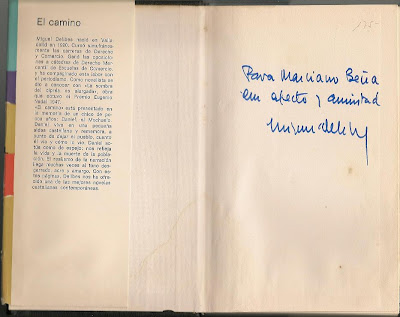 El camino
Miguel Delibes nació en Valla-
dolid en 1920. Cursó simultánea-
mente las carreras de Derecho
y Comercio. Ganó las oposicio-
nes a cátedras de Derecho Mer-
cantil de Escuelas de Comercio,
y ha compaginado esta labor con
el periodismo. Como novelista se
dio a conocer con «La sombra
del ciprés es alargada», obra
que obtuvo el Premio Eugenio
Nadal 1947.
«El camino» está presentado en
la memoria de un chico de po-
cos años: Daniel, el Mochuelo.
Daniel vive en una pequeña
aldea castellana y rememora, a
punto de dejar el pueblo, cuanto
él vio y cómo lo vio. Daniel ac-
túa como de espejo: nos refleja
la vida y la muerte de la pobla-
ción. El realismo de la narración
llega muchas veces al tono des-
garrado, acre y amargo. Con es-
tas páginas, Delibes nos ha ofre-
cido una de las mejores novelas
castellanas contemporáneas.
Para Mariano Seña
con afecto y amistad
Miguel Delibes